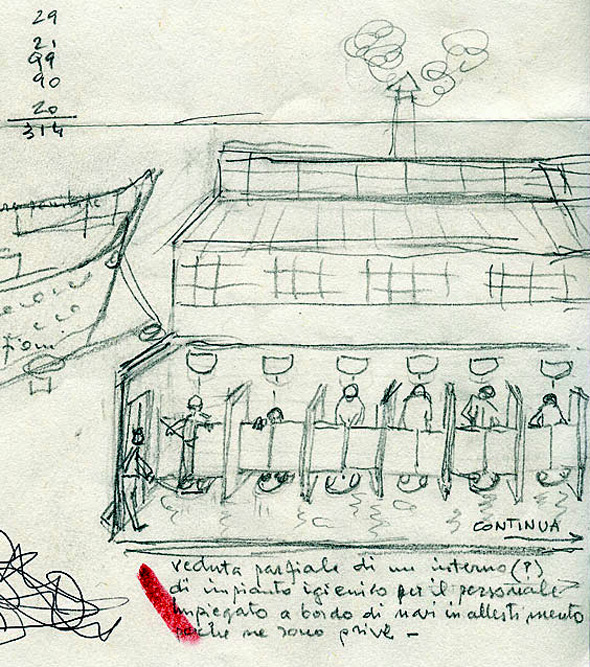 29
21
99
90
20
314
CONTINUA
veduta parziale di un interno (?)
di impianto igienico per il personale
impiegato a bordo di navi in allestimento
poiche ne sono prive -